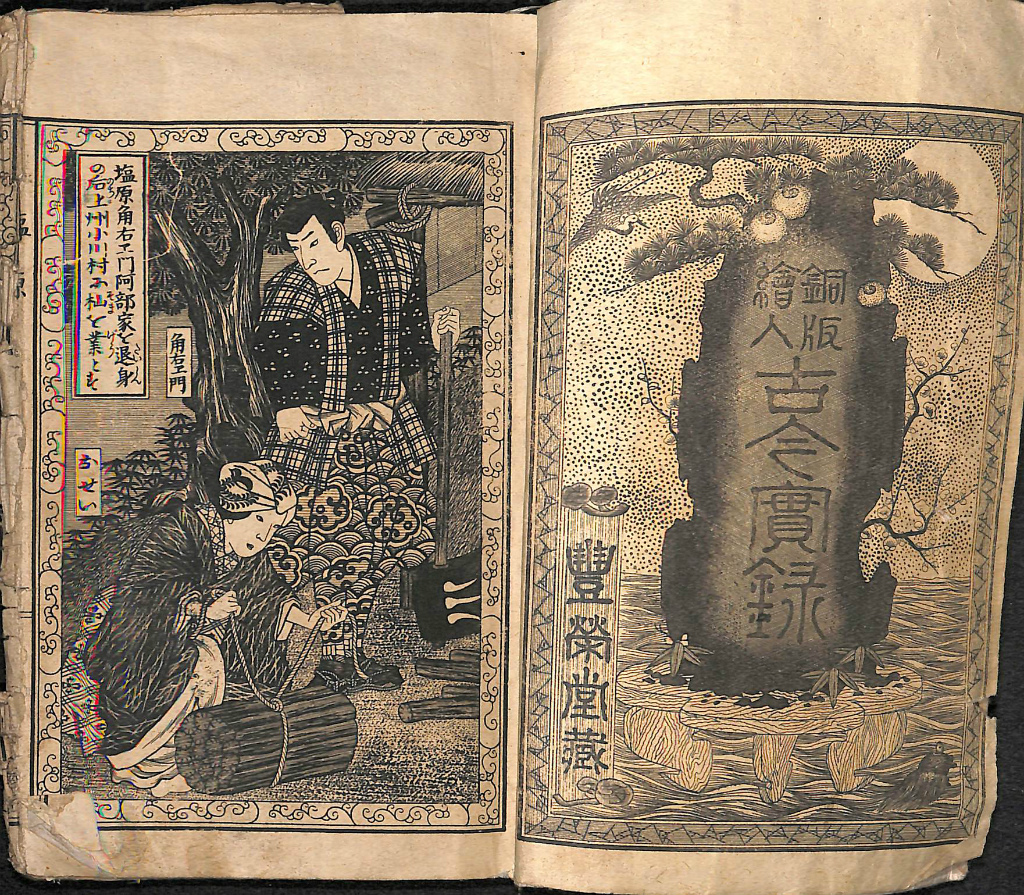 銅版
繪人
古今實録
豐榮堂藏
塩原角右エ門阿部家を退身
の后上州小川村に杣を業とす
角右エ門
おせい